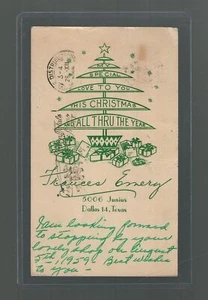 SPECIAL
LOVE TO YOU
THIS CHRISTMAS
& ALL THRU THE YEAR
Frances Emery
5006 Junius
Dallas 14, Texas
I am looking forward
to stopping by your
lovely shop on August
5th, 1959. Best wishes
to you -